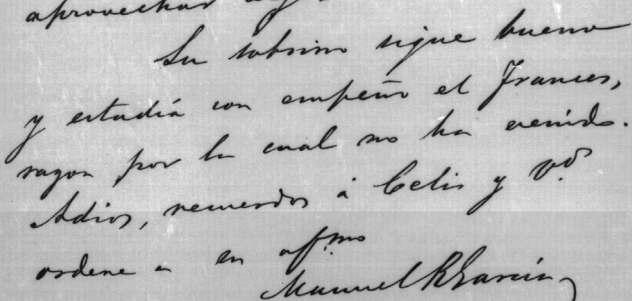 aprovechar
Su sobrino sigue bueno
y estudia con empeño el Frances,
razon por la cual no ha venido.
Adios, recuerdos á Celis y Vd
ordene a su afmo
Manuel R Garcia